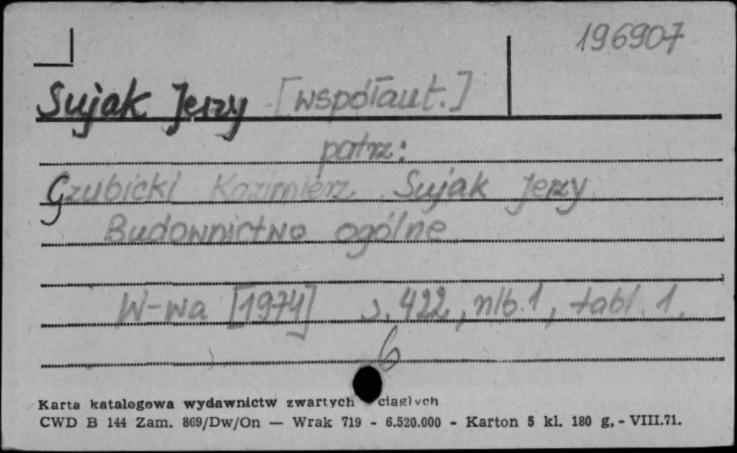 196907
Sujak Jerzy [współaut.]
patrz:
Grubicki Kazimierz, Sujak Jerzy
Budownictwo ogólne
W-wa [1974] s. 422, nlb. 1, tabl. 1.
6
Karta katalogowa wydawnictw zwartych ciągłych
CWD B 144 Zam. 869/Dw/On — Wrak 719 - 6.520.000 - Karton 5 kl. 180 g. - VIII.71.